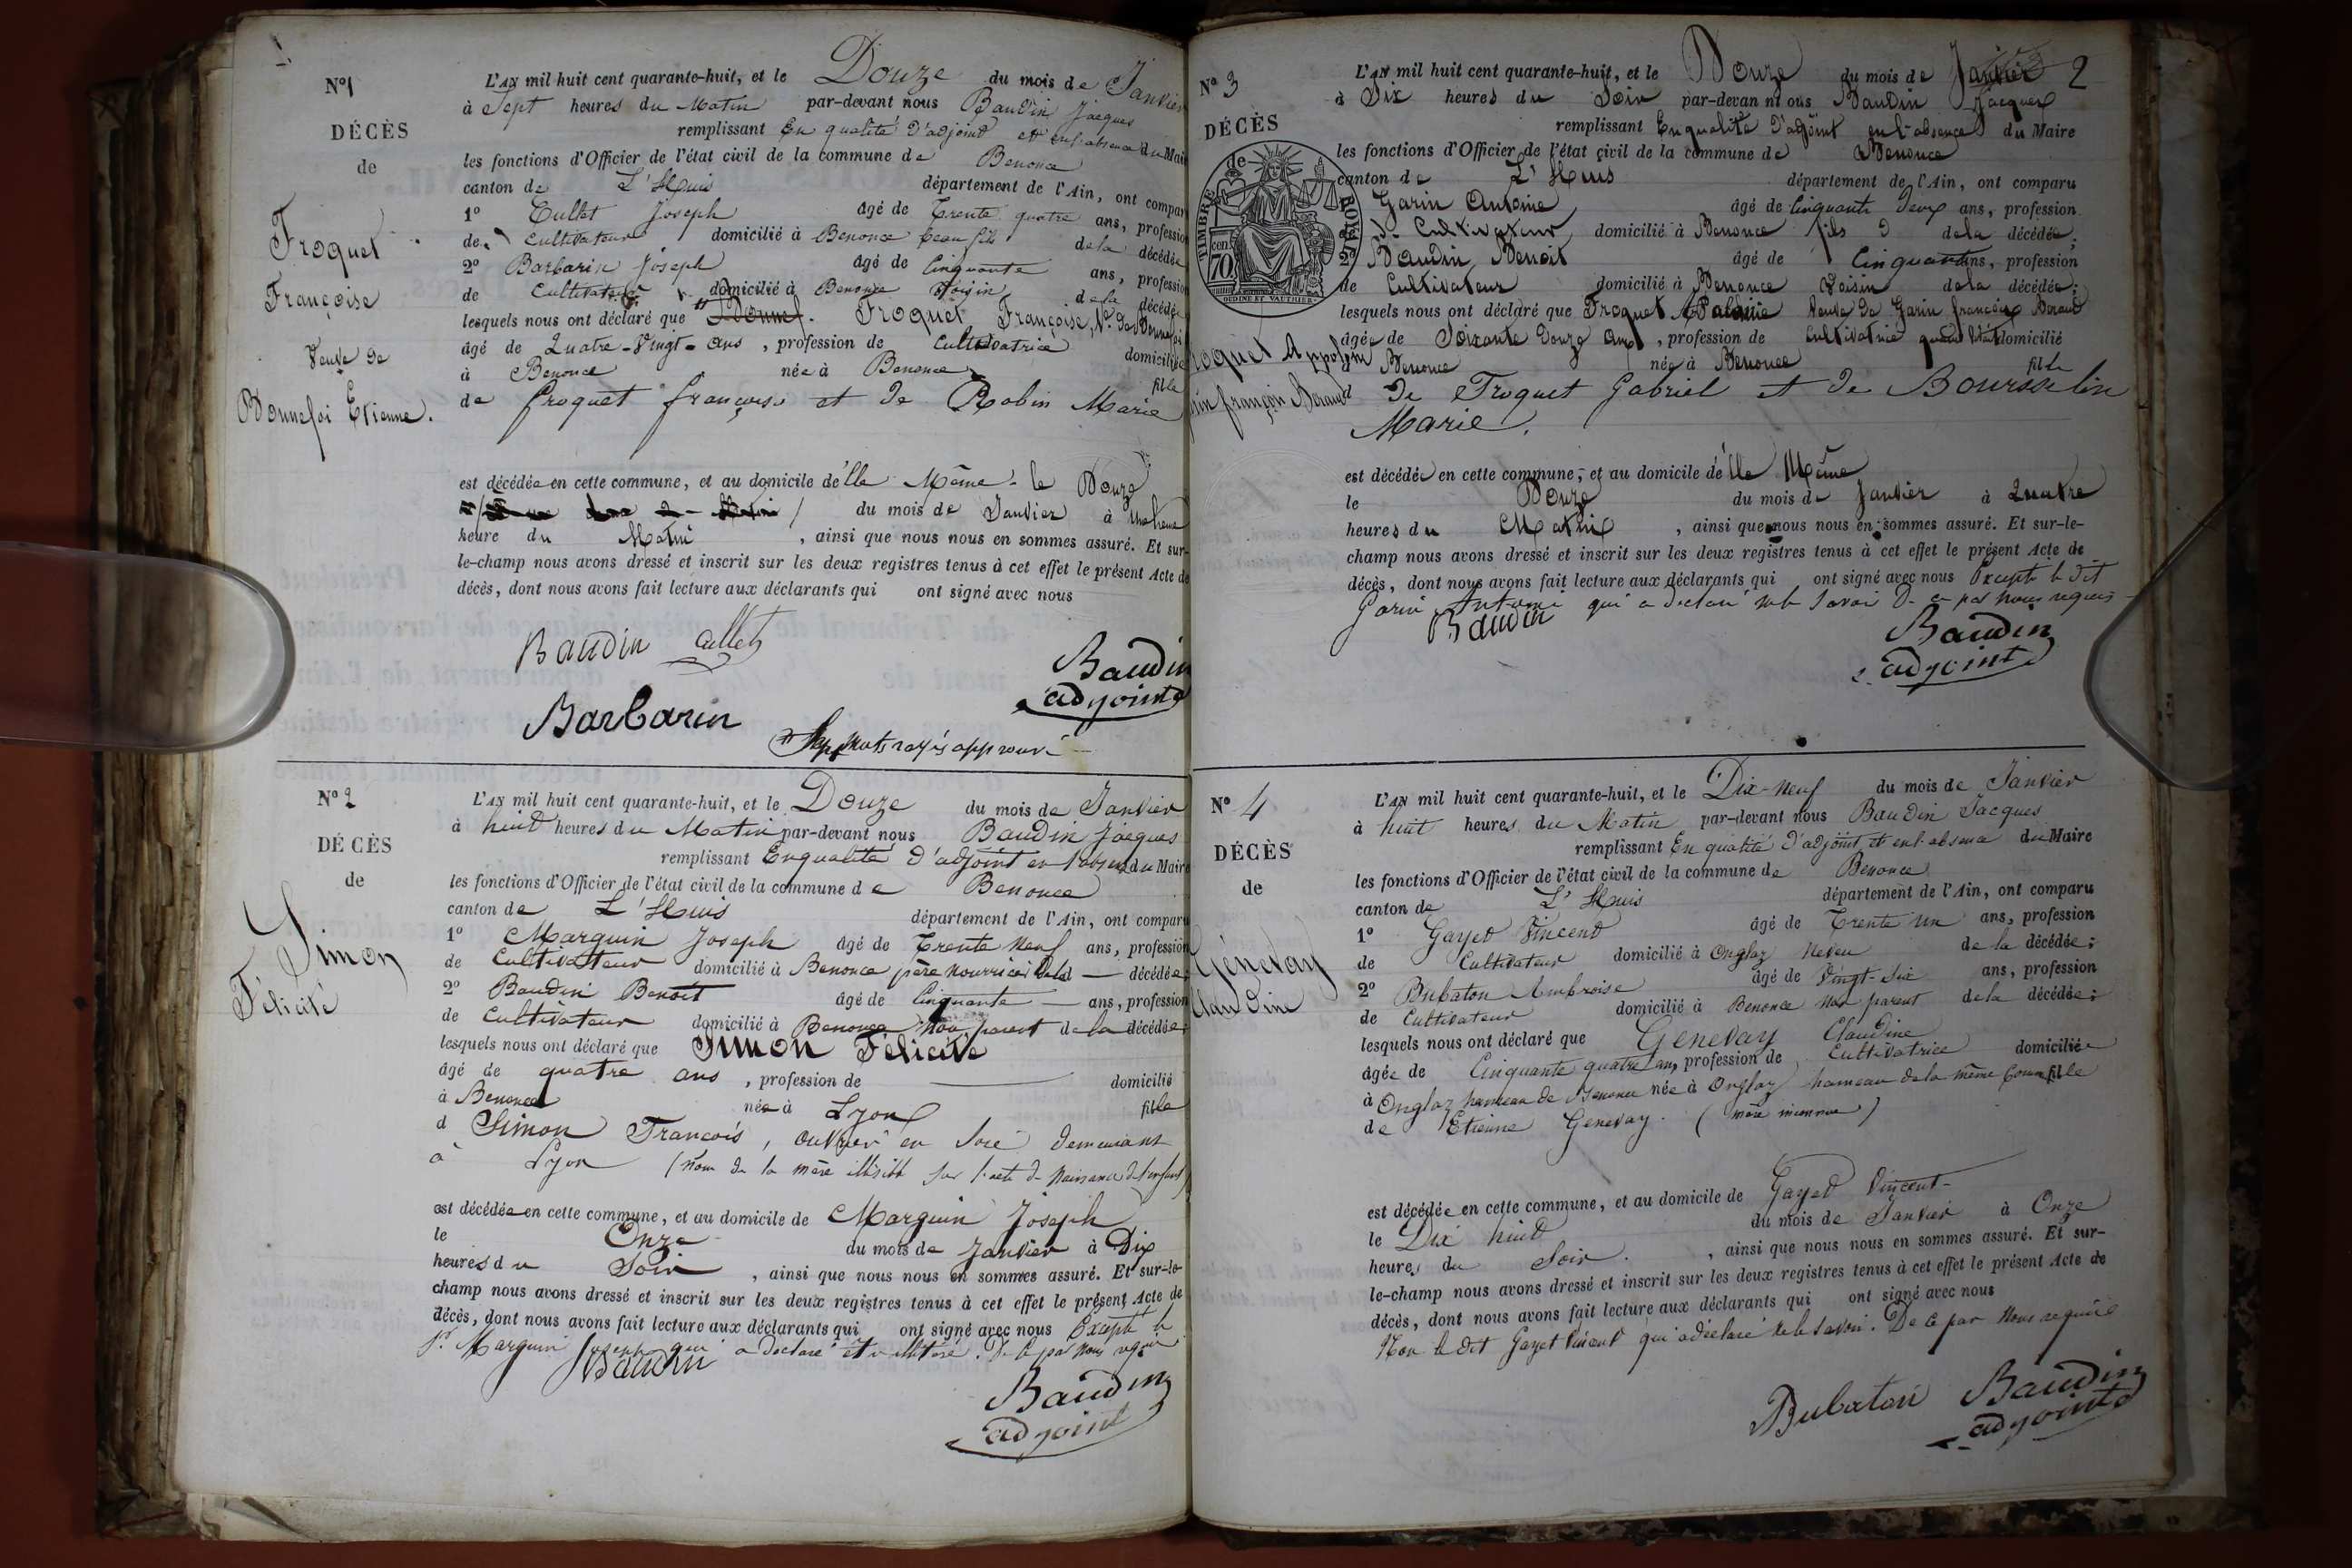 1
N° 1
DÉCÈS
de
Froquet
Françoise
Veuve de
Bonnefoi Etienne.
L'AN mil huit cent quarante-huit, et le Douze du mois de Janvier
à Sept heures du Matin par-devant nous Baudin Jacques
remplissant En qualité d'adjoint et en l'absence du Maire
les fonctions d'Officier de l'état civil de la commune de Benonce
canton de L'Huis département de l'Ain, ont comparu
1° Cullet Joseph âgé de Trente quatre ans, profession
de Cultivateur domicilié à Benonce beau fils de la décédée
2° Barbarin Joseph âgé de Cinquante ans, profession
de Cultivateur domicilié à Benonce Voisin de la décédée
lesquels nous ont déclaré que Froquet Françoise, Ve de Bonnefoi
âgé de Quatre-Vingt-ans, profession de Cultivatrice domiciliée
à Benonce née à Benonce fille
de froquet françois et de Robin Marie
est décédée en cette commune, et au domicile d'élle Même le Douze
du mois de Janvier à une heure
heure du Matin, ainsi que nous nous en sommes assuré. Et sur-
le-champ nous avons dressé et inscrit sur les deux registres tenus à cet effet le présent Acte de
décès, dont nous avons fait lecture aux déclarants qui ont signé avec nous
Baudin Cullet
Baudin
adjoint
Barbarin
Sept mots rayés approuvé
N° 2
DÉCÈS
de
Simon
Félicité
L'AN mil huit cent quarante-huit, et le Douze du mois de Janvier
à huit heures du Matin par-devant nous Baudin Jacques
remplissant En qualité d'adjoint en l'absence du Maire
les fonctions d'Officier de l'état civil de la commune de Benonce
canton de L'Huis département de l'Ain, ont comparu
1° Marguin Joseph âgé de Trente Neuf ans, profession
de Cultivateur domicilié à Benonce père nourricier de la décédée
2° Baudin Benoit âgé de Cinquante ans, profession
de Cultivateur domicilié à Benonce Non parent de la décédée;
lesquels nous ont déclaré que Simon Félicité
âgé de quatre ans, profession de domicilié
à Benonce née à Lyon fille
d Simon François, ouvrier en soie demeurant
à Lyon (Nom de la mère illisible sur l'acte de Naissance de l'enfant)
est décédée en cette commune, et au domicile de Marguin Joseph
le Onze du mois de Janvier à Dix
heures du Soir, ainsi que nous nous en sommes assuré. Et sur-le-
champ nous avons dressé et inscrit sur les deux registres tenus à cet effet le présent Acte de
décès, dont nous avons fait lecture aux déclarants qui ont signé avec nous Excepté le
Sr Marguin Joseph qui a declaré et illitéré. De ce par Nous requis
Baudin
Baudin
adjoint
2
N° 3
DÉCÈS
de
TIMBRE ROYAL
70 cen
OUDINE ET VAUTHIER
Froquet Appolonie
Garin françois Beraud
L'AN mil huit cent quarante-huit, et le Douze du mois de Janvier
à Dix heures du Soir par-devan nt ous Baudin Jacques
remplissant En qualité d'adjoint en l'absence du Maire
les fonctions d'Officier de l'état civil de la commune de Benonce
canton de L'Huis département de l'Ain, ont comparu
Garin Antoine âgé de Cinquante deux ans, profession
de Cultivateur domicilié à Benonce fils de la décédée;
2° Baudin Benoit âgé de Cinquante ans, profession
de Cultivateur domicilié à Benonce Voisin de la décédée;
lesquels nous ont déclaré que Froquet Veuve de Garin françois Beraud
âgée de Soixante Douze Ans, profession de Cultivatrice domicilié
Benonce née à Benonce fille
de Froquet Gabriel et de Boursselin
Marie.
est décédée en cette commune, et au domicile d'élle Même
le Douze du mois de Janvier à Quatre
heures du Matin, ainsi que nous nous en sommes assuré. Et sur-le-
champ nous avons dressé et inscrit sur les deux registres tenus à cet effet le présent Acte de
décès, dont nous avons fait lecture aux déclarants qui ont signé avec nous Excepté le dit
Garin Antoine qui a declaré ne le savoir De ce par Nous requis
Baudin
Baudin
adjoint
N° 4
DÉCÈS
de
Génevay
Claudine
L'AN mil huit cent quarante-huit, et le Dix-Neuf du mois de Janvier
à huit heures du Matin par-devant nous Baudin Jacques
remplissant En qualité d'adjoint et en l'absence du Maire
les fonctions d'Officier de l'état civil de la commune de Benonce
canton de L'Huis département de l'Ain, ont comparu
1° Gayet Vincent âgé de Trente un ans, profession
de Cultivateur domicilié à Onglaz Neveu de la décédée;
2° Bubaton Ambroise âgé de Vingt-Six ans, profession
de Cultivateur domicilié à Benonce Non parent de la décédée;
lesquels nous ont déclaré que Genevay Claudine
âgée de Cinquante quatre ans profession de Cultivatrice domiciliée
à Onglaz hameau de Benonce née à Onglaz hameau de la même Commune fille
de Etienne Genevay. (mère inconnue)
est décédée en cette commune, et au domicile de Gayet Vincent
le Dix huit du mois de Janvier à Onze
heures du Soir, ainsi que nous nous en sommes assuré. Et sur-
le-champ nous avons dressé et inscrit sur les deux registres tenus à cet effet le présent Acte de
décès, dont nous avons fait lecture aux déclarants qui ont signé avec nous
Non le dit Gayet Vincent qui a déclaré ne le savoir. De ce par Nous requis
Bubaton Baudin
adjoint